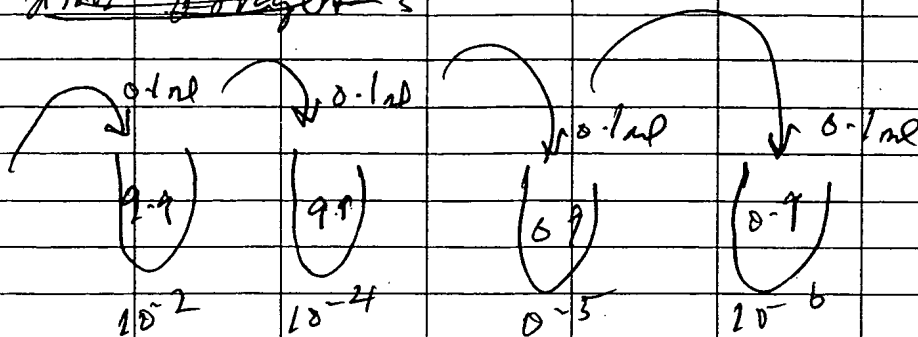 0.1 ml 0.1 ml 0.1 ml 0.1 ml
9.9 9.9 0.9 0.9
10-2 10-4 0-5 10-6